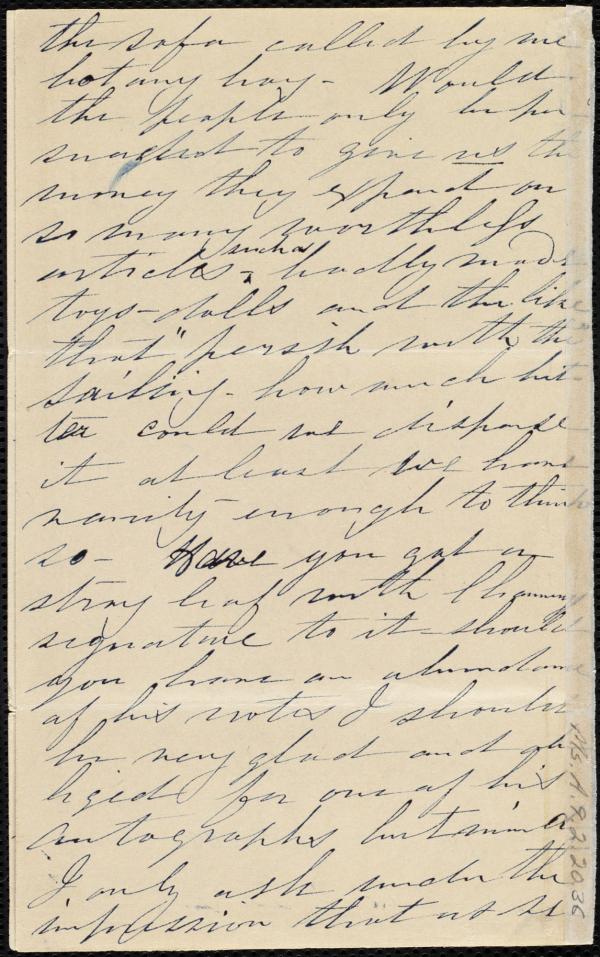 the sofa called by me
hot any hay - Would
the people only be per
suaded to give us the
money they expend on
so many worthless
such as
articles - badly made
toys - dolls and the like
that "perish with the
sailing - how much bet-
ter could we dispense
it at least we have
vanity enough to think
so - Have you got a
stray leaf with Channing
signature to it - should
you have an abundance
of his notes I should
be very glad and ob
liged for one of his
autographs but mind
I only ask under the
impression that
Ms.A.9.2.20.36